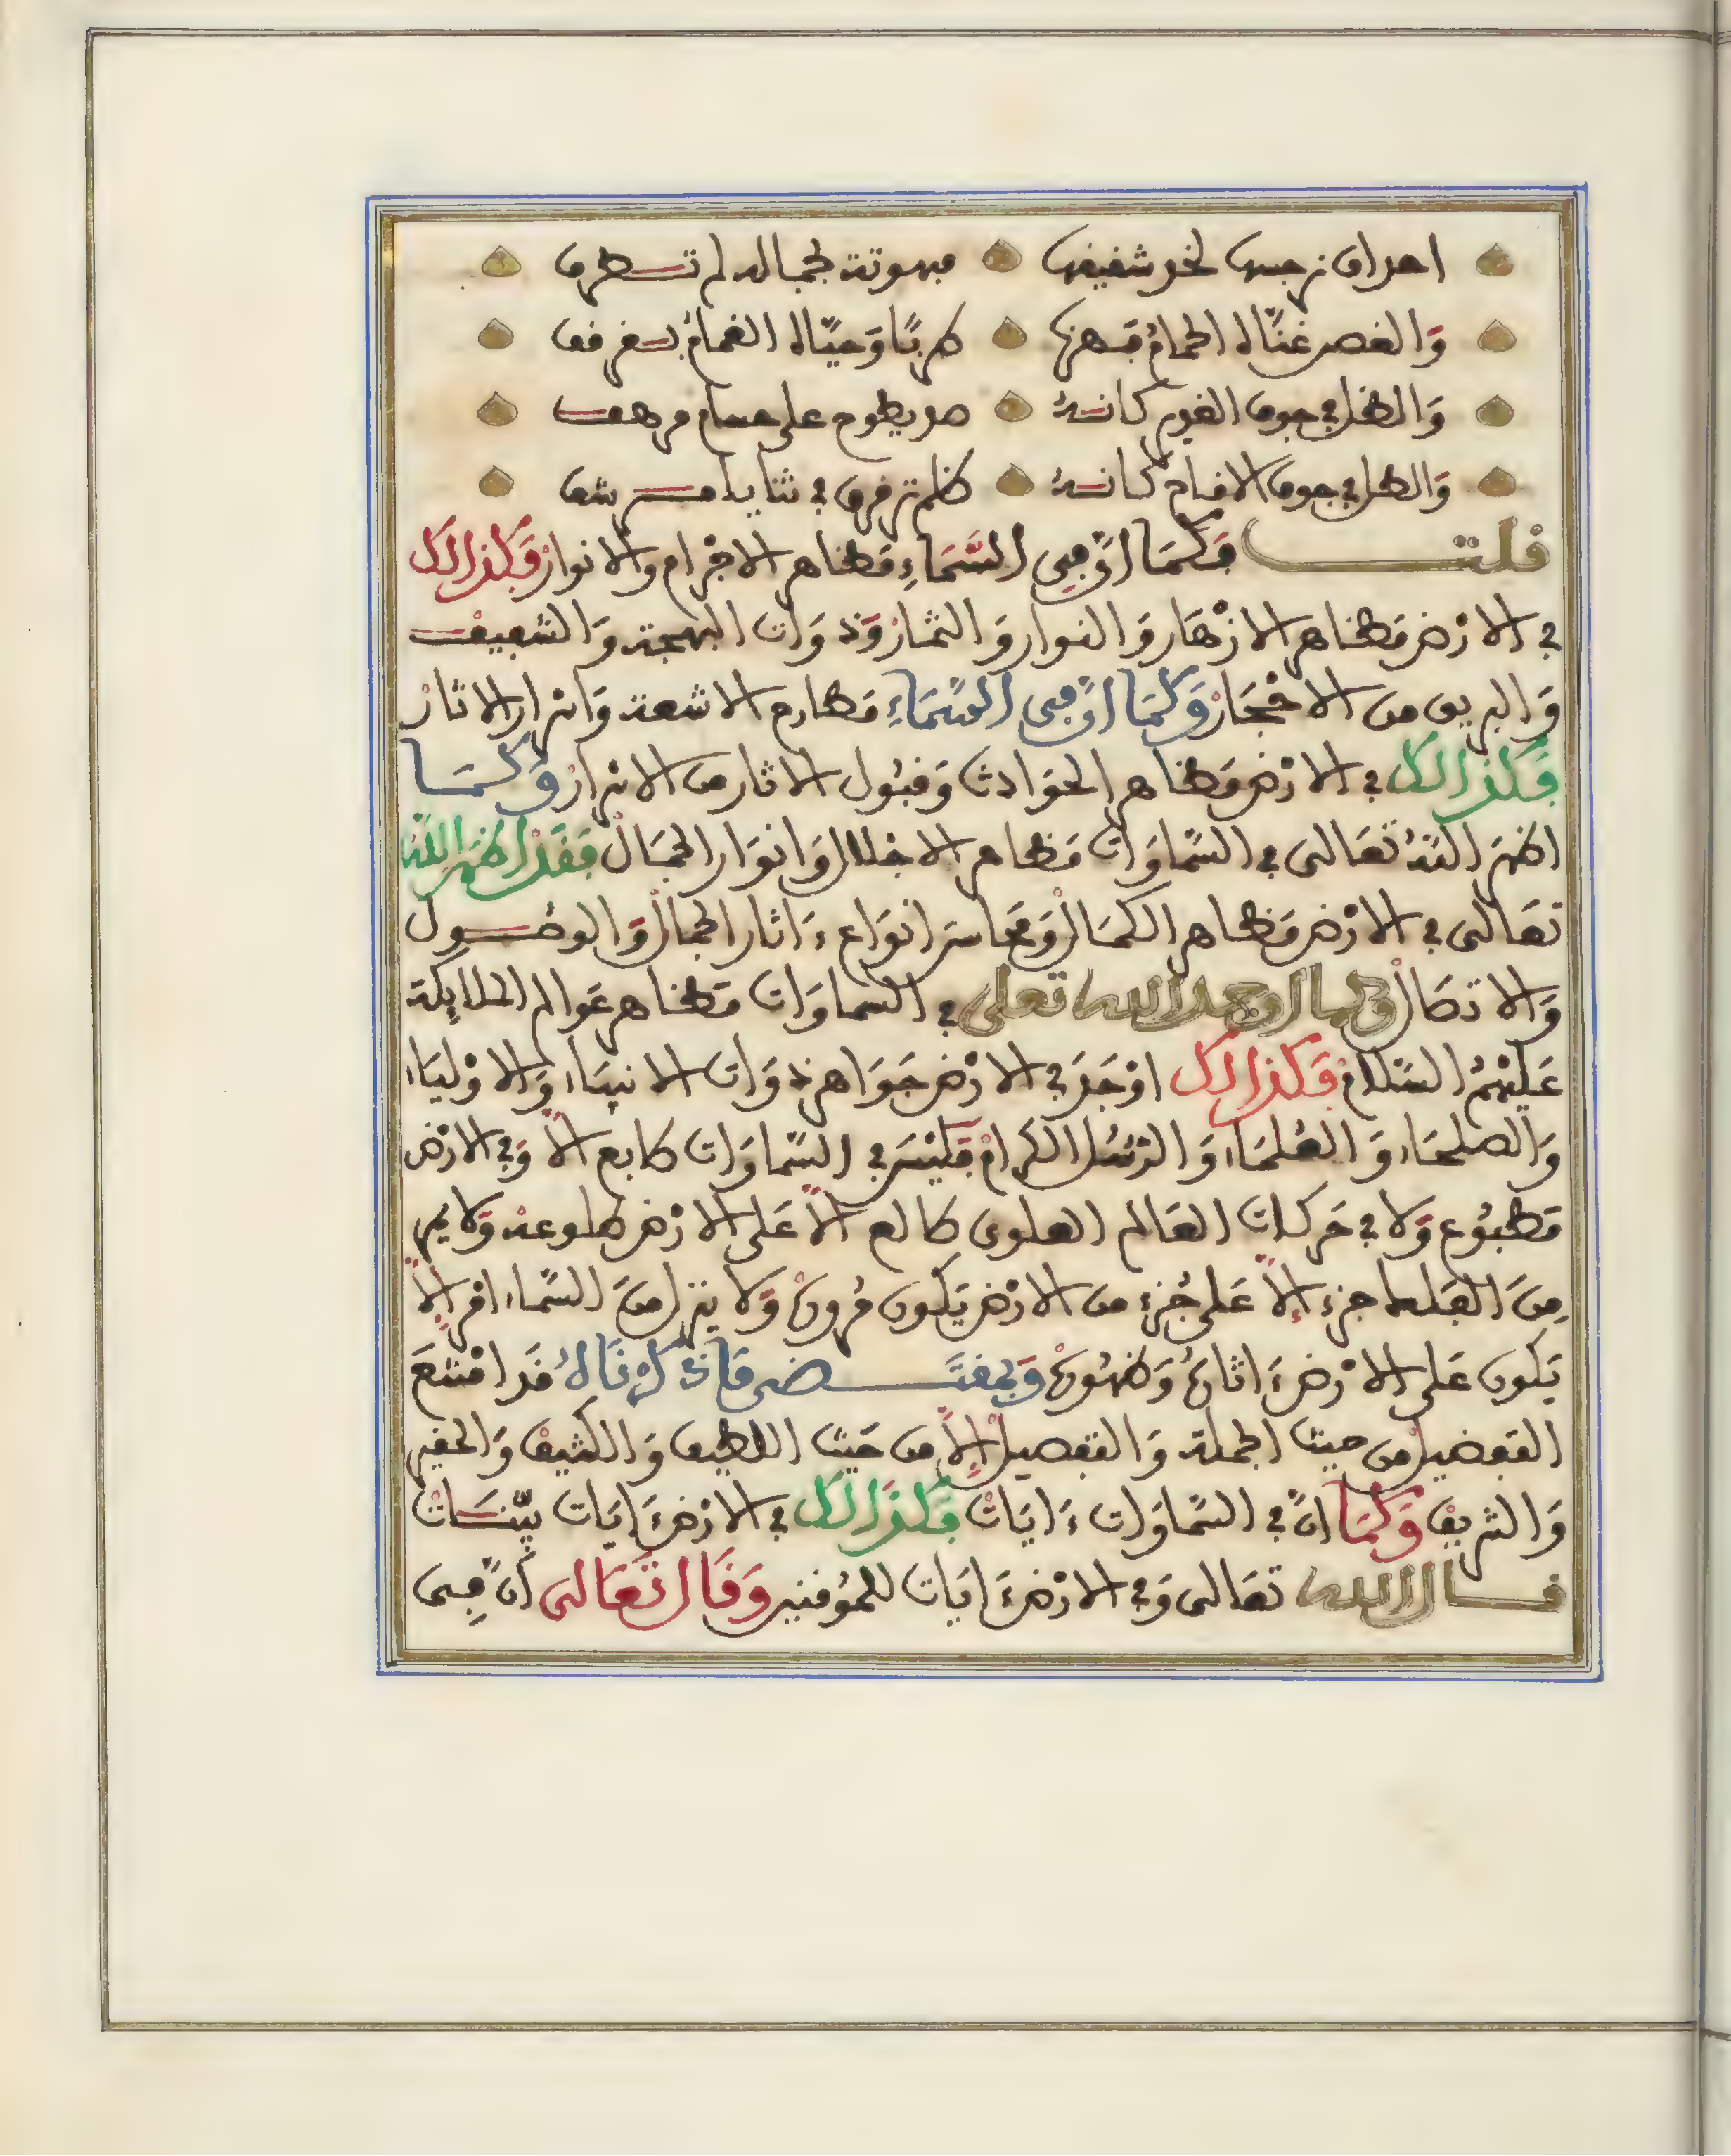 احداق نرجسها لخد شقيقها مبهوتة بجماله لم تطرف
وَالغصن غنَّاه الحمامُ فهزها طربًا وَحيَّاه الغمامُ بقرقف
وَالظل في جوف الغدير كانه صد يلوح على حسام مرهف
وَالطل في جوف الاقاح كانه ظلم ترقرق في ثنايا مرشف
قلت فَكَمَا اَنَّ فِى السَّمَاءِ مَظاهر الاجْرام والانوارْ فَكَذالك
في الارْض مَظاهر الازْهَار وَالنوار وَالثمارْ وَذوَات البهجة وَالشفيف
وَالبريق من الاحْجَارْ وَكَمَا اَنَّ فِى السَّمَاءِ مَطارح الاشعة وَاسْرار الاثارْ
فَكَذالك في الارْض مَظاهر الحَوَادث وَقبُول الاثار من الاسْرارْ وَكَمَا
اظهَرَ اللهُ تعَالى في السَّماوَات مَظاهر الاجْلال وَانوَار الجمَالْ فَقَدْ اظهر اللهُ
تعَالى في الارْض مَظاهر الكمَالْ وَمحَاسن انوَاع ءَاثار الجمالْ وَالوصُول
وَالاتصَالْ وكما اوجد الله تعلى في السماوَات مَظاهر عَوالم الملايِكة
عَليْهمُ السَّلامْ فَكَذالك اوْجَدَ في الارْض جَوَاهر ذوَات الانبيَاء وَالاوْليَاء
وَالصلحَاء وَالعُلمَاء وَالرّسُل الكرامْ فَليْسَ في السَّماوَات طابع الاَّ وَفي الارْض
مَطبُوع وَلا في حَركات العَالم العلوى طالع الاَّ عَلى الارْض طلوعه وَلا يمر
مِنَ الفلك جزء إلاَّ عَلى جُزء من الارْض يَكون مُرورهُ وَلا ينزل منَ السَّماء امْر إلاَّ
يَكون عَلى الارْض ءَاثارهُ وَظهُورهُ وَبمقتَضى مَا ذكرْنَاهُ قَد امْتنَعَ
التفضيل من حيث الجملة وَالتفصيلْ إلاَّ من حَيْث اللطيف وَالكثيفْ وَالحقير
وَالشريفْ وَكَمَا انَّ في السَّماوَات ءَايَاتْ فَكَذَالك في الارْض ءَايَات بيّنَاتْ
قال الله تعَالى وَفي الارْض ءَايَات للمُوقنين وَقَال تعَالى اِنَّ فِى